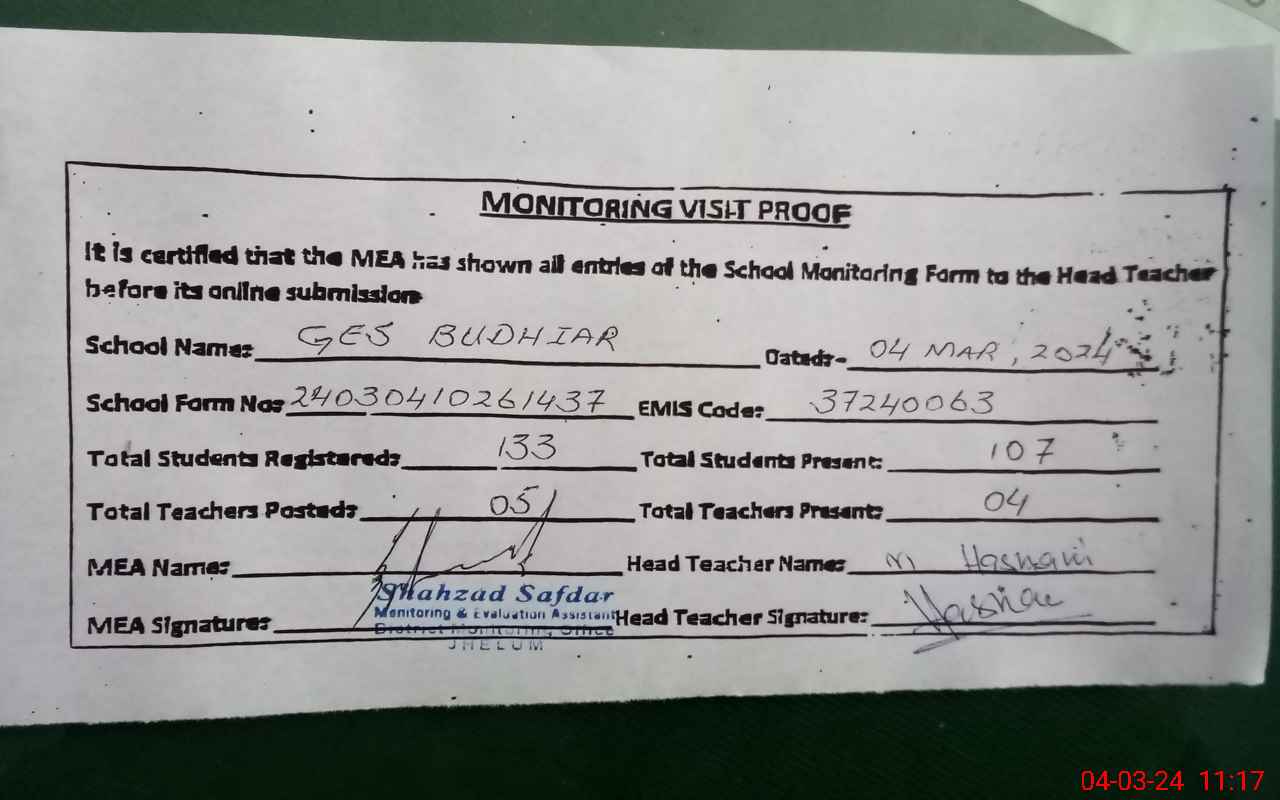 MONITORING VISIT PROOF
It is certified that the MEA has shown all entries of the School Monitoring Form to the Head Teacher
before its online submission
School Name: GES BUDHIAR Dated:- 04 MAR, 2024
School Form No: 24030410261437 EMIS Code: 37240063
Total Students Registered: 133 Total Students Present: 107
Total Teachers Posted: 05 Total Teachers Present: 04
MEA Name: Head Teacher Name: M Hasnain
Shahzad Safdar
Monitoring & Evaluation Assistant
MEA Signature: Head Teacher Signature:
District Monitoring Office
JHELUM
04-03-24 11:17